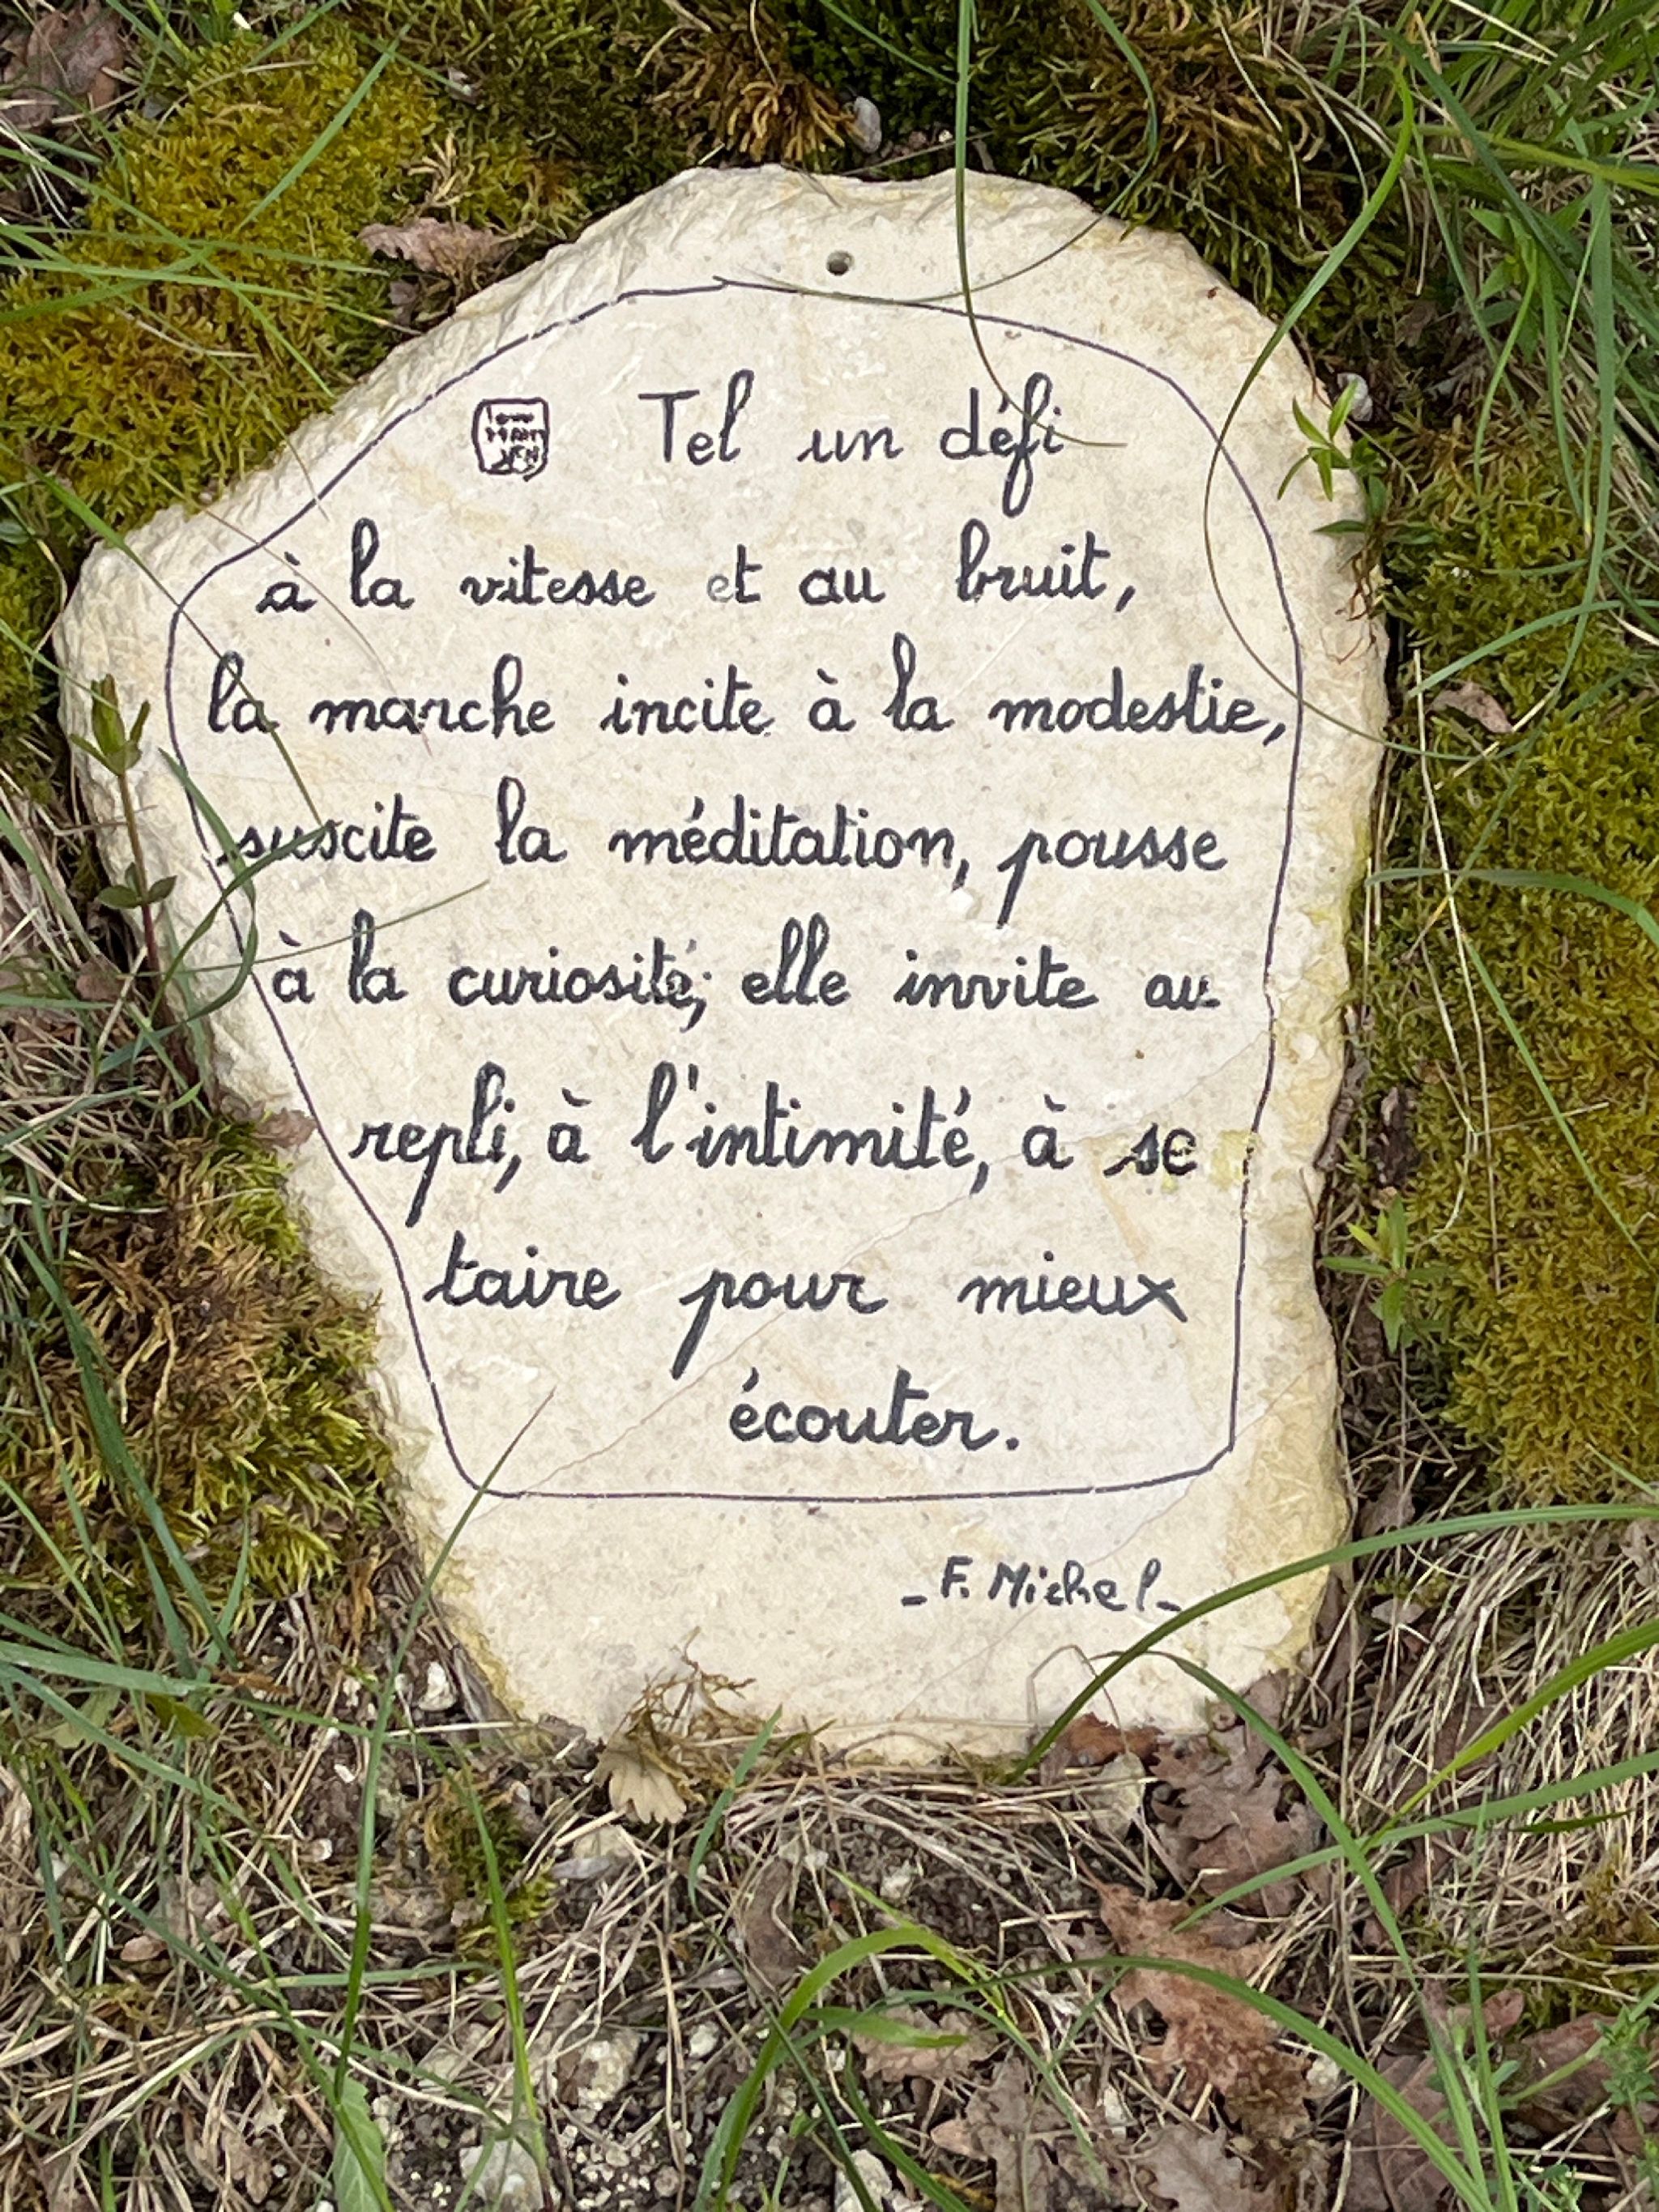 Tel un défi
à la vitesse et au bruit,
la marche incite à la modestie,
suscite la méditation, pousse
à la curiosité; elle invite au
repli, à l'intimité, à se
taire pour mieux
écouter.
- F. Michel -